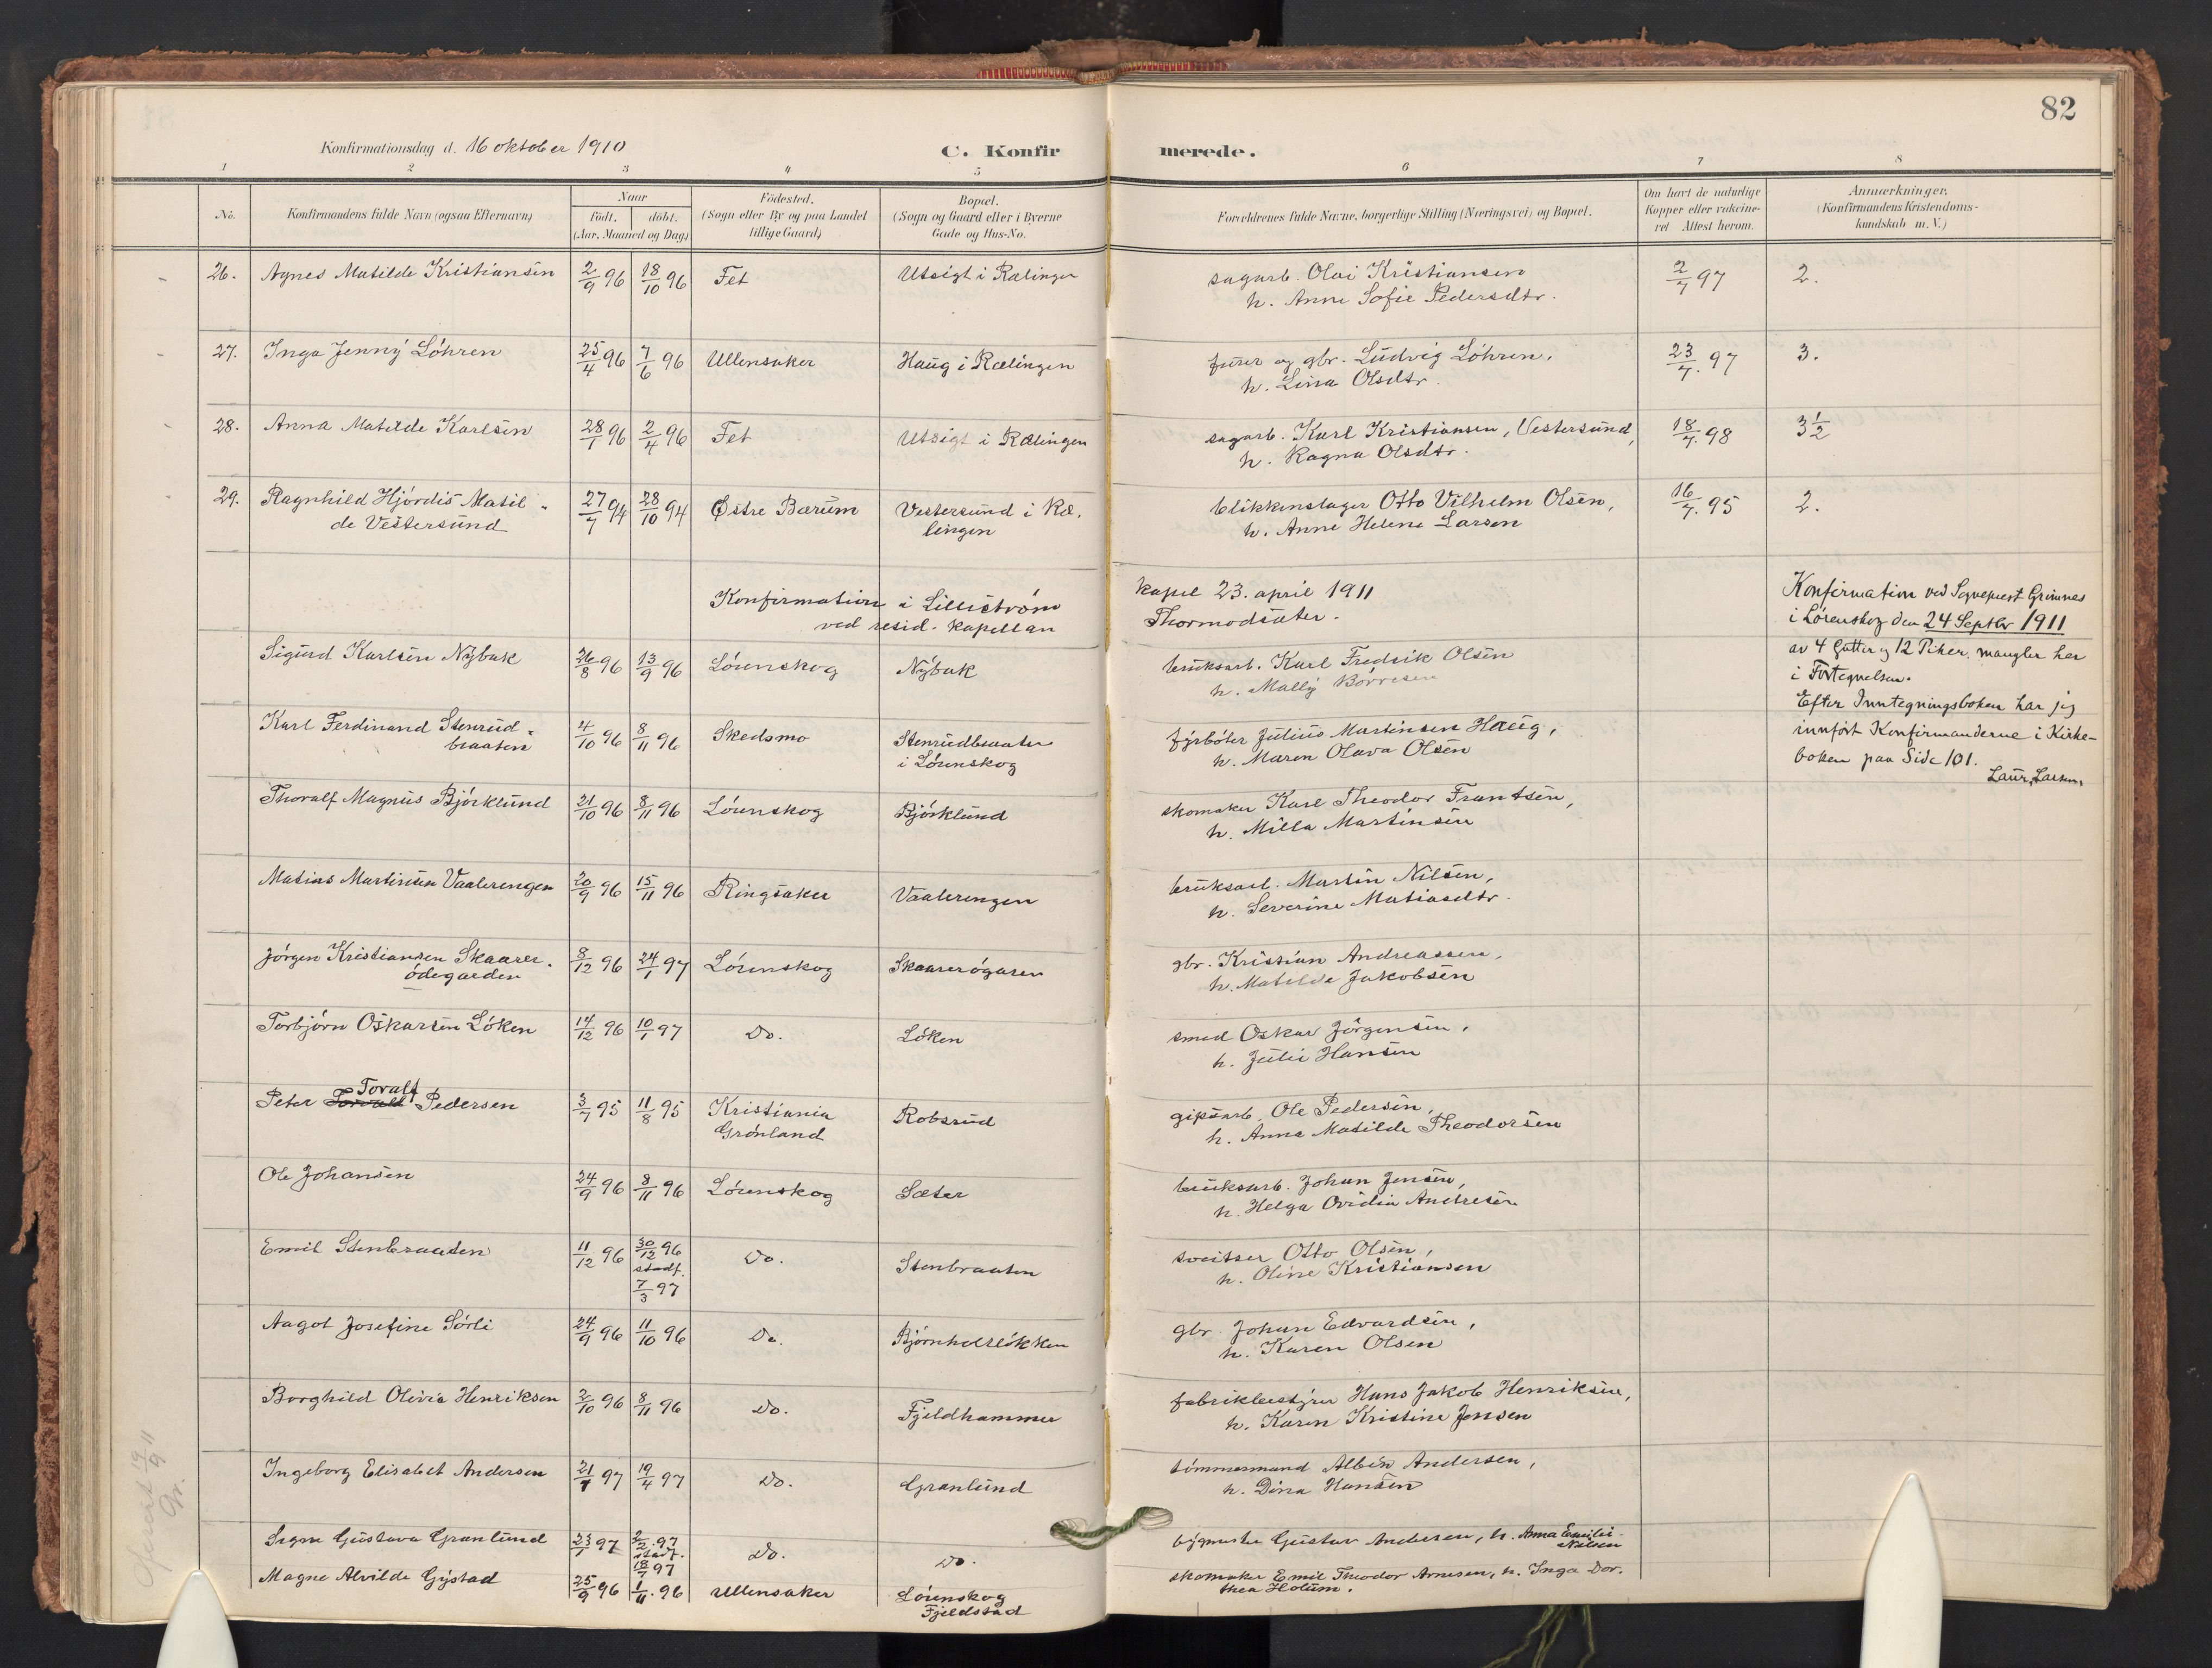 82
Konfirmationsdag d. 16 oktober 1910
C. Konfirmerede.
1 2 3 4 5 6 7 8
No.
Konfirmandens fulde Navn (ogsaa Efternavn)
Naar
födt. döbt.
(Aar, Maaned og Dag)
Födested.
(Sogn eller By og paa Landet
tillige Gaard)
Bopæl.
(Sogn og Gaard eller i Byerne
Gade og Hus-No.
Forældrenes fulde Navne, borgerlige Stilling (Næringsvei) og Bopæl.
Om havt de naturlige
Kopper eller vakcine-
ret Attest herom.
Anmærkninger.
(Konfirmandens Kristendoms-
kundskab m. V.)
26. Agnes Matilde Kristiansen 2/9 96 18/10 96 Fet Utsigt i Rælingen sagarb. Olai Kristiansen 2/7 97 2.
h. Anne Sofie Pedersdtr.
27. Inga Jenny Löhren 25/4 96 7/6 96 Ullensaker Haug i Rælingen furer og gbr. Ludvig Löhren, 23/7. 97 3.
h. Lina Olsdtr.
28. Anna Matilde Karlsen 28/1 96 2/4 96 Fet Utsigt i Rælingen sagarb. Karl Kristiansen, Vestersund, 18/7. 98 3½
h. Ragna Olsdtr.
29. Ragnhild Hjördis Matil- 27/7 94 28/10 94 Østre Bærum Vestersund i Ræ- blikkenslager Otto Vilhelm Olsen, 16/7. 95 2.
de Vestersund lingen h. Anne Helene Larsen
Konfirmation i Lilleström kapel 23. april 1911
ved resid. kapellan Thormodsæter.
Konfirmation ved Sogneprest Grimnes
i Lörenskog den 24 Septbr 1911
av 4 Gutter og 12 Piker mangler her
i Fortegnelsen.
Efter Inntegningsboken har jeg
innfört Konfirmanderne i Kirke-
boken paa Side 101.
Laur. Larsen
Sigurd Karlsen Nybak 26/8 96 13/9 96 Lörenskog Nybak bruksarb. Karl Fredrik Olsen
h. Mally Börresen
Karl Ferdinand Stenrud- 4/10 96 8/11 96 Skedsmo Stenrudbraaten fyrböter Julius Martinsen Haug,
braaten i Lörenskog h. Maren Olava Olsen
Thoralf Magnus Björklund 21/10 96 8/11 96 Lörenskog Björklund skomaker Karl Theodor Frantsen,
h. Milla Martinsen
Matias Martinsen Vaalerengen 20/9 96 15/11 96 Ringsaker Vaalerengen bruksarb. Martin Nilsen,
h. Severine Matiasdtr.
Jörgen Kristiansen Skaarer- 8/12 96 24/1 97 Lörenskog Skaarerögaren gbr. Kristian Andreassen,
ödegarden h. Matilde Jakobsen
Torbjörn Oskarsen Löken 14/12 96 10/1 97 Do. Löken smed Oskar Jörgensen,
h. Julie Hansen
Toralf
Peter Pedersen 3/7 95 11/8 95 Kristiania Robsrud gipsarb. Ole Pedersen,
Grönland h. Anna Matilde Theodorsen
Ole Johansen 24/9 96 8/11 96 Lörenskog Sæter bruksarb. Johan Jensen,
h. Helga Ovidia Andresen
Emil Stenbraaten 11/12 96 30/12 96 Do. Stenbraaten sveitser Otto Olsen,
stadf. 7/3 97 h. Oline Kristiansen
Aagot Josefine Sörli 24/9 96 11/10 96 Do. Björnholtlökken gbr. Johan Edvardsen,
h. Karen Olsen
Borghild Olivia Henriksen 2/10 96 8/11 96 Do. Fjeldhammer fabrikbestyrer Hans Jakob Henriksen,
h. Karen Kristine Jensen
Ingeborg Elisabet Andersen 21/1 97 19/4 97 Do. Granlund tömmermand Albin Andersen,
h. Dina Hansen
Signe Gustava Granlund 23/1 97 2/2. 97 Do. Do. bygmester Gustav Andersen, h. Anna Emilie
stadf. 18/7 97 Nilsen
Magne Alvilde Gystad 25/9 96 1/11. 96 Ullensaker Lörenskog skomaker Emil Theodor Arnesen, h. Inga Dor.
Fjeldstad thea Holum.
19/9 11
Gr.